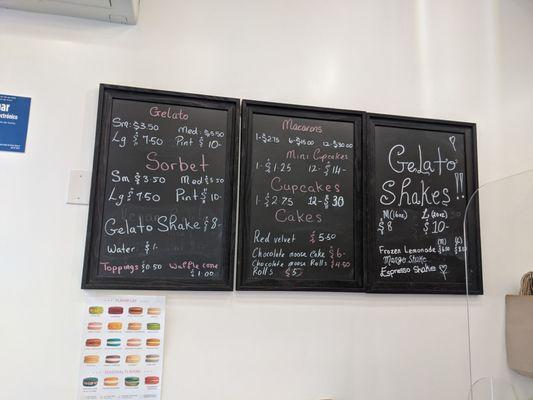 Gelato
Sm: $3.50 Med: $5.50
Lg $7.50 Pint $10-
Sorbet
Sm $3.50 Med $5.50
Lg $7.50 Pint $10-
Gelato Shake $8-
Water $1-
Toppings $0.50 Waffle cone
$1.00
Macarons
1-$2.75 6-$15.00 12-$30.00
Mini Cupcakes
1-$1.25 12-$14-
Cupcakes
1-$2.75 12-$30
Cakes
Red velvet $5.50
Chocolate moose Cake $6-
Chocolate moose Rolls $4.50
Rolls $5
Gelato
Shakes!!
M(16oz) L(
$8 $10-
Frozen Lemonade
Mango Shake
Espresso Shake
FLAVOR LIST
SEASONAL FLAVOR